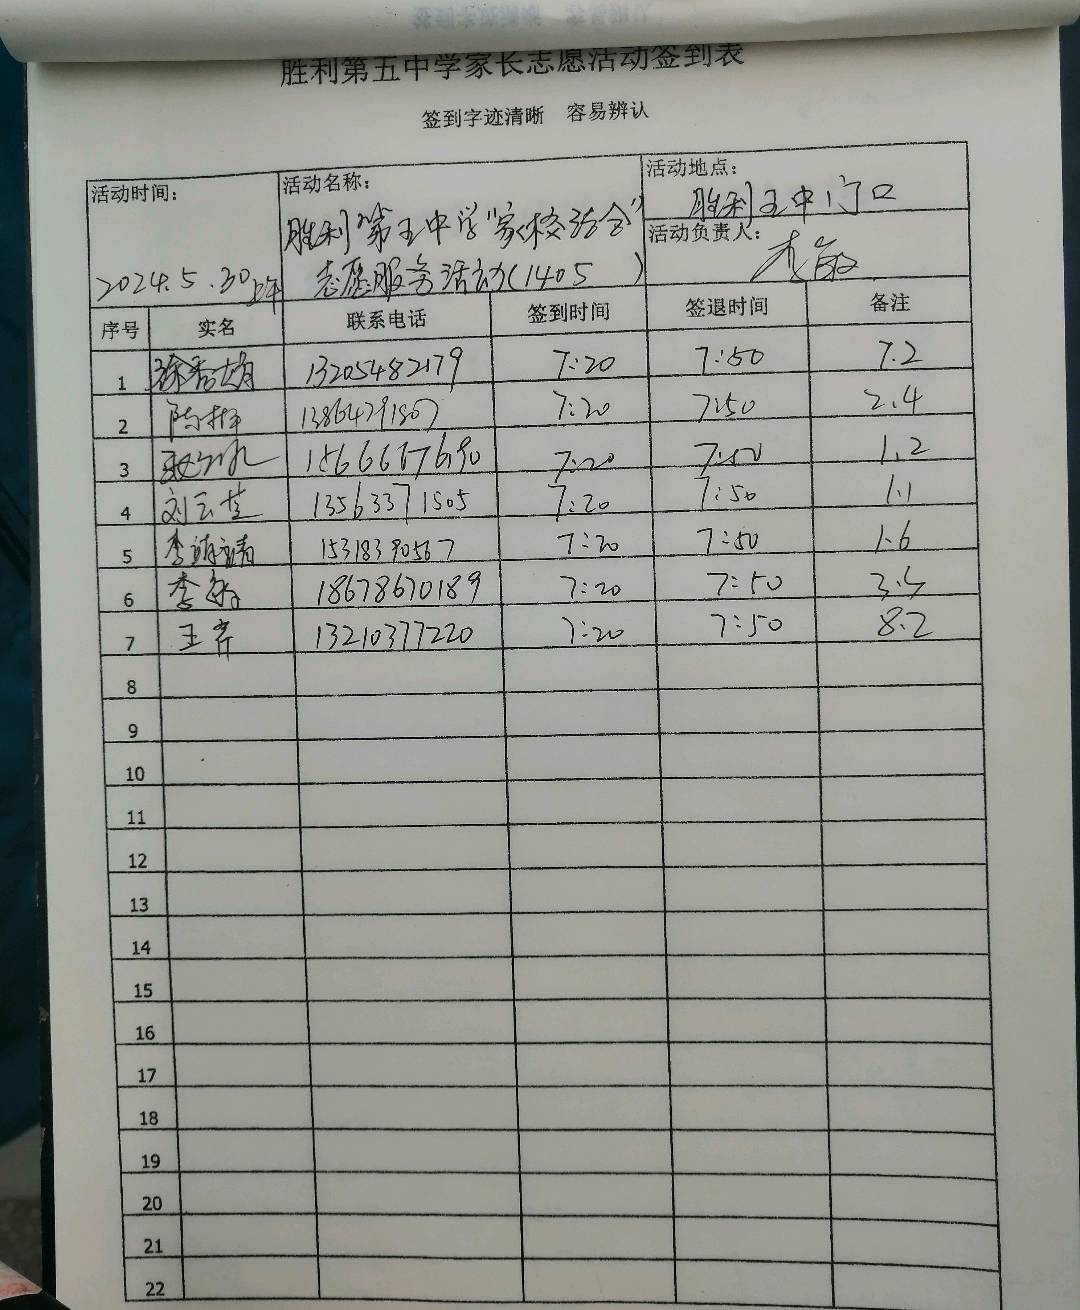 胜利第五中学家长志愿活动签到表
签到字迹清晰 容易辨认
活动时间： 活动名称： 活动地点：
胜利五中门口
胜利第五中学"家校结合" 活动负责人：
2024.5.30上午 志愿服务活动(1405 ) 李敏
序号 实名 联系电话 签到时间 签退时间 备注
1 徐秀娟 13205482179 7:20 7:50 7.2
2 13864291507 7:20 7:50 2.4
3 15666676190 7:20 7:50 1.2
4 刘云芝 13563371505 7:20 7:50 1.1
5 李 15318390567 7:20 7:50 1.6
6 李敏 18678670189 7:20 7:50
7 王齐 13210377220 7:20 7:50 8.2
8
9
10
11
12
13
14
15
16
17
18
19
20
21
22